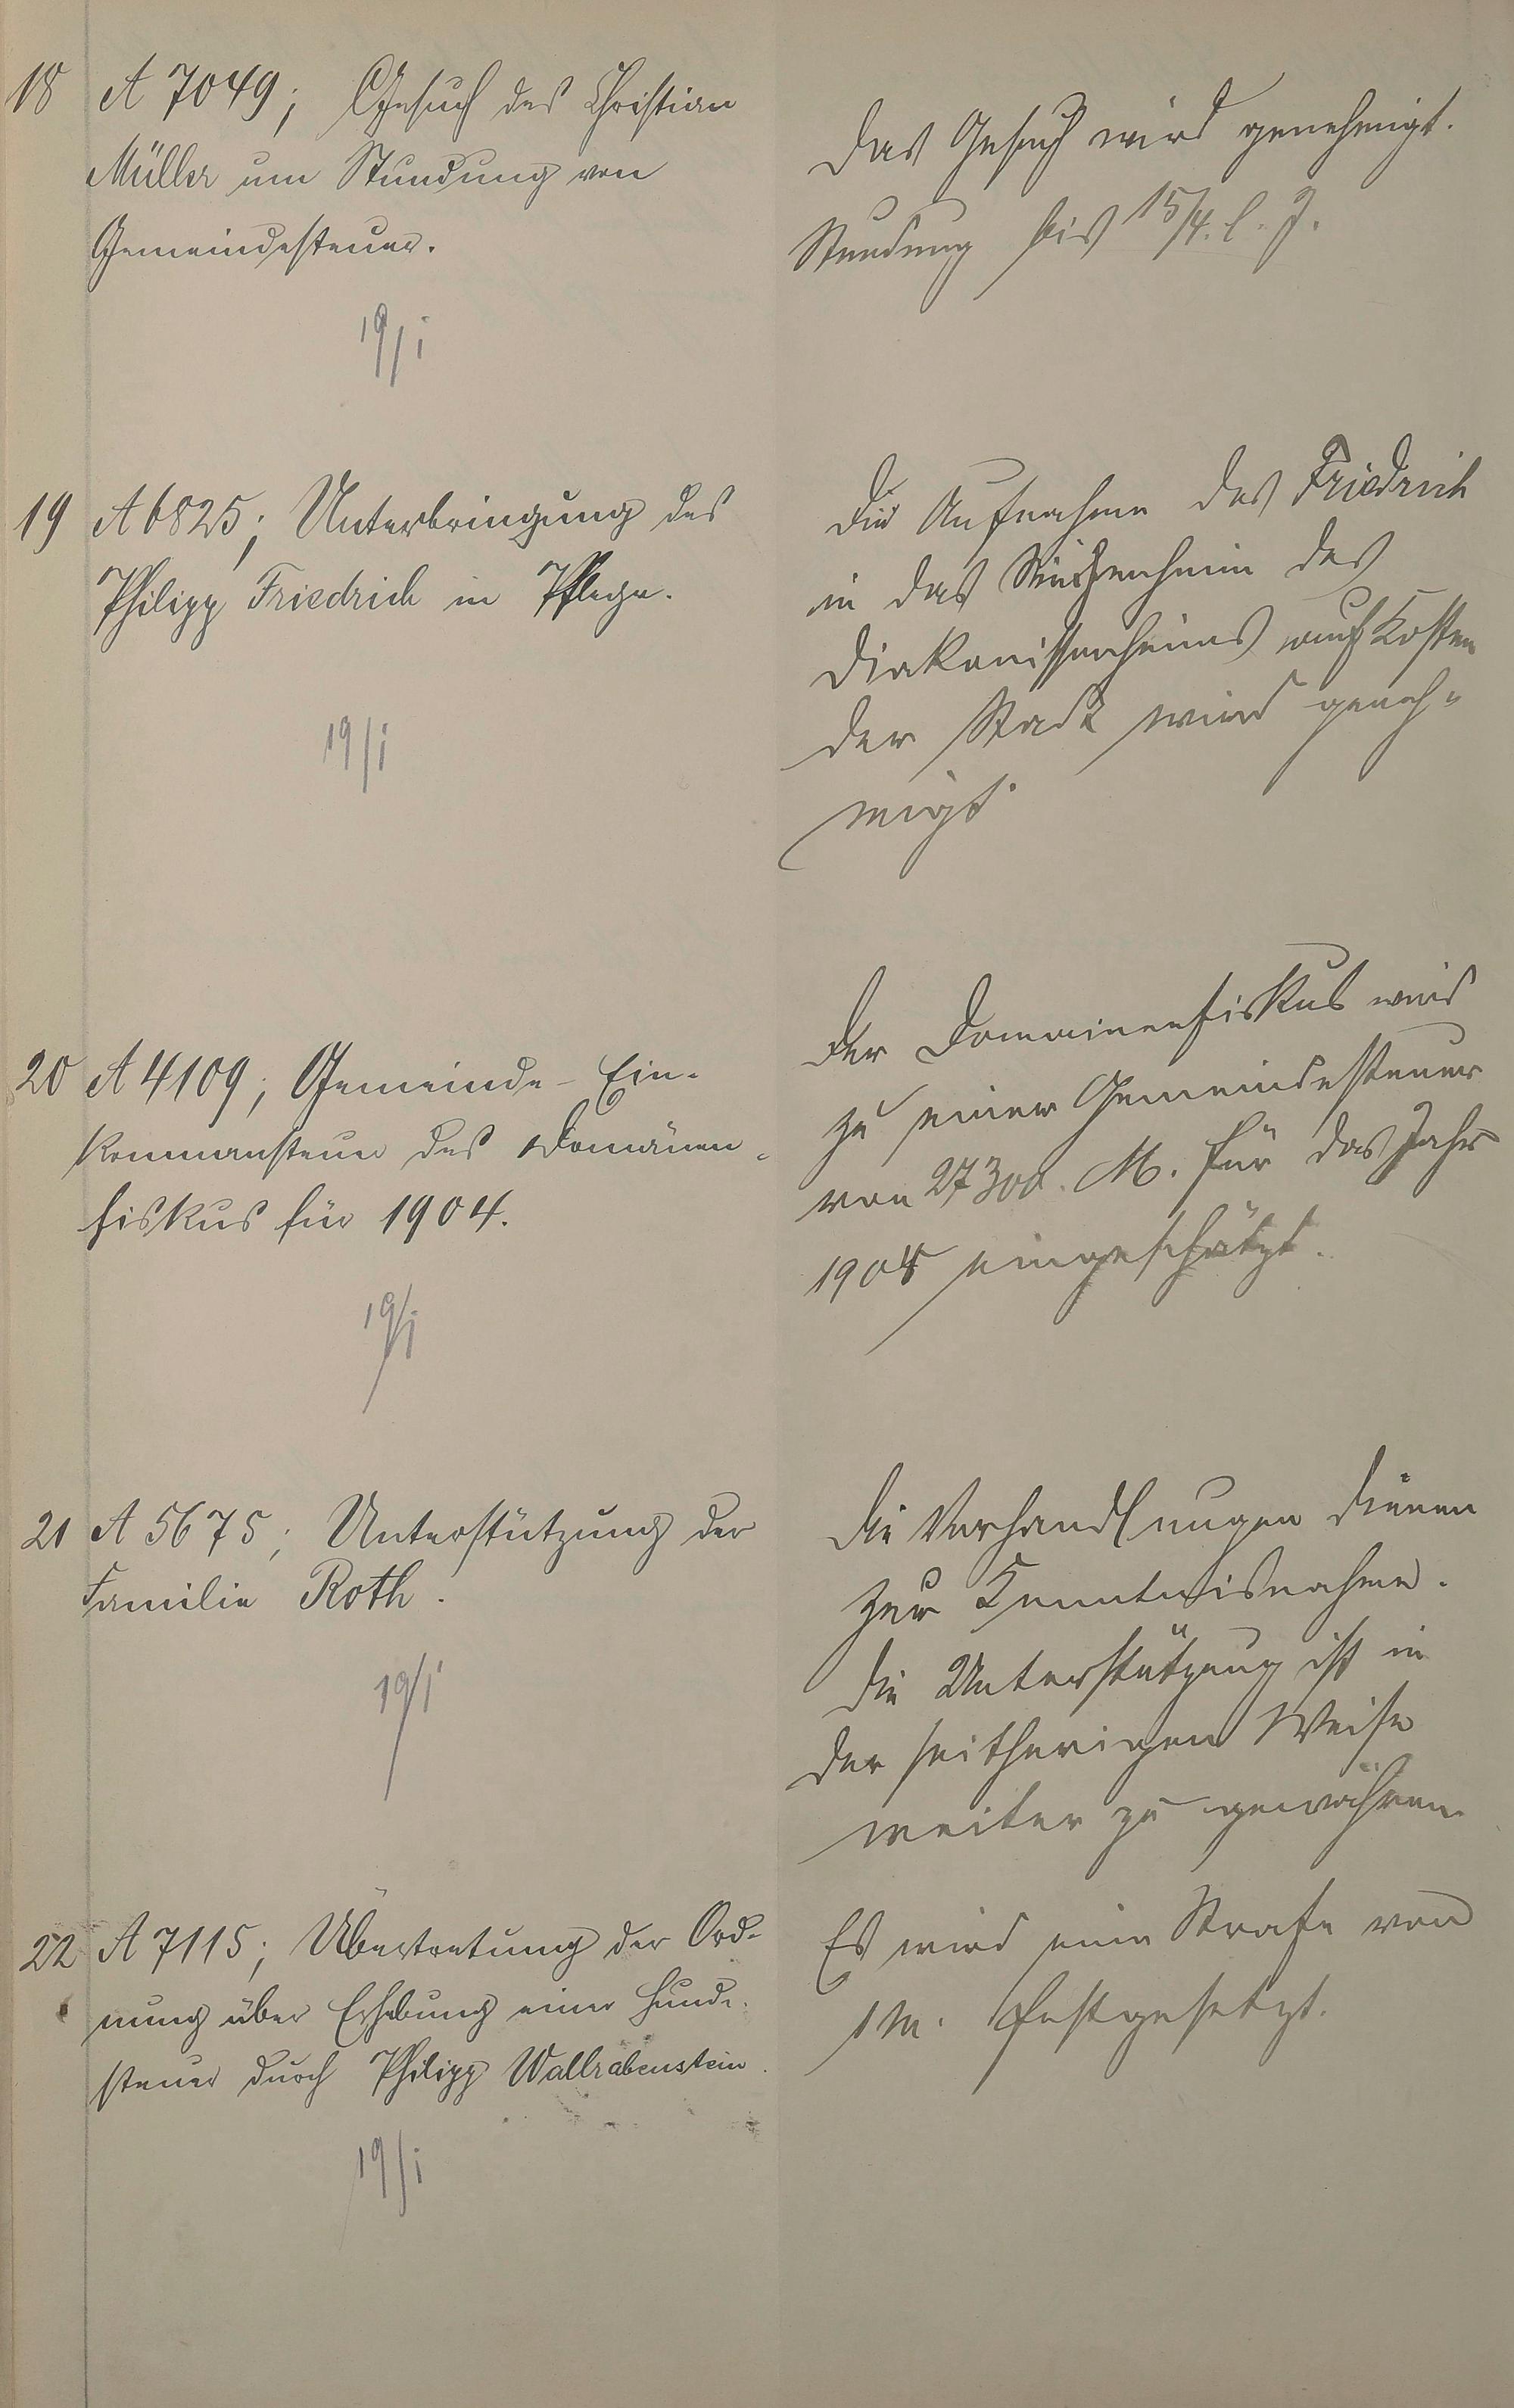 18 A 7049; Gesuch des Christian
Müller um Stundung von
Gemeindesteuer.
19/1
Das Gesuch wird genehmigt.
Stundung bis 15/4. l. J.
19 A 6825; Unterbringung des
Philipp Friedrich in Pflege.
19/1
Die Aufnahme des Friedrich
in das Siechenheim des
Diakonissenheims auf Kosten
der Stadt wird geneh-
migt.
20 A 4109; Gemeinde-Ein-
kommensteuer des Domänen-
fiskus für 1904.
19/1
Der Domainenfiskus wird
zu einer Gemeindesteuer
von 27300. M. für das Jahr
1904 eingeschätzt.
21 A 5675; Unterstützung der
Familie Roth.
19/1
Die Verhandlungen dienen
zur Kenntnisnahme.
Die Unterstützung ist in
der seitherigen Weise
weiter zu gewähren.
22 A 7115; Übertretung der Ord-
nung über Erhebung einer Hunde-
steuer durch Philipp Wallrabenstein.
19/1
Es wird eine Strafe von
1 M. festgesetzt.